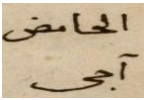 الحامض
آجى